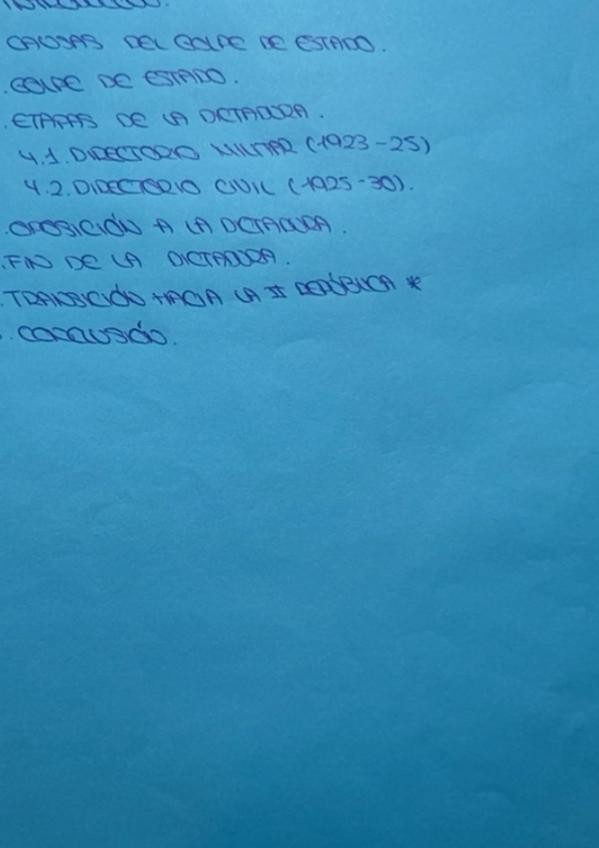 INTRODUCCIÓN.
CAUSAS DEL GOLPE DE ESTADO.
.GOLPE DE ESTADO.
.ETAPAS DE LA DICTADURA.
4.1. DIRECTORIO MILITAR (1923-25)
4.2. DIRECTORIO CIVIL (1925-30).
.OPOSICIÓN A LA DICTADURA.
.FIN DE LA DICTADURA.
.TRANSICIÓN HACIA LA II REPÚBLICA *
. CONCLUSIÓN.